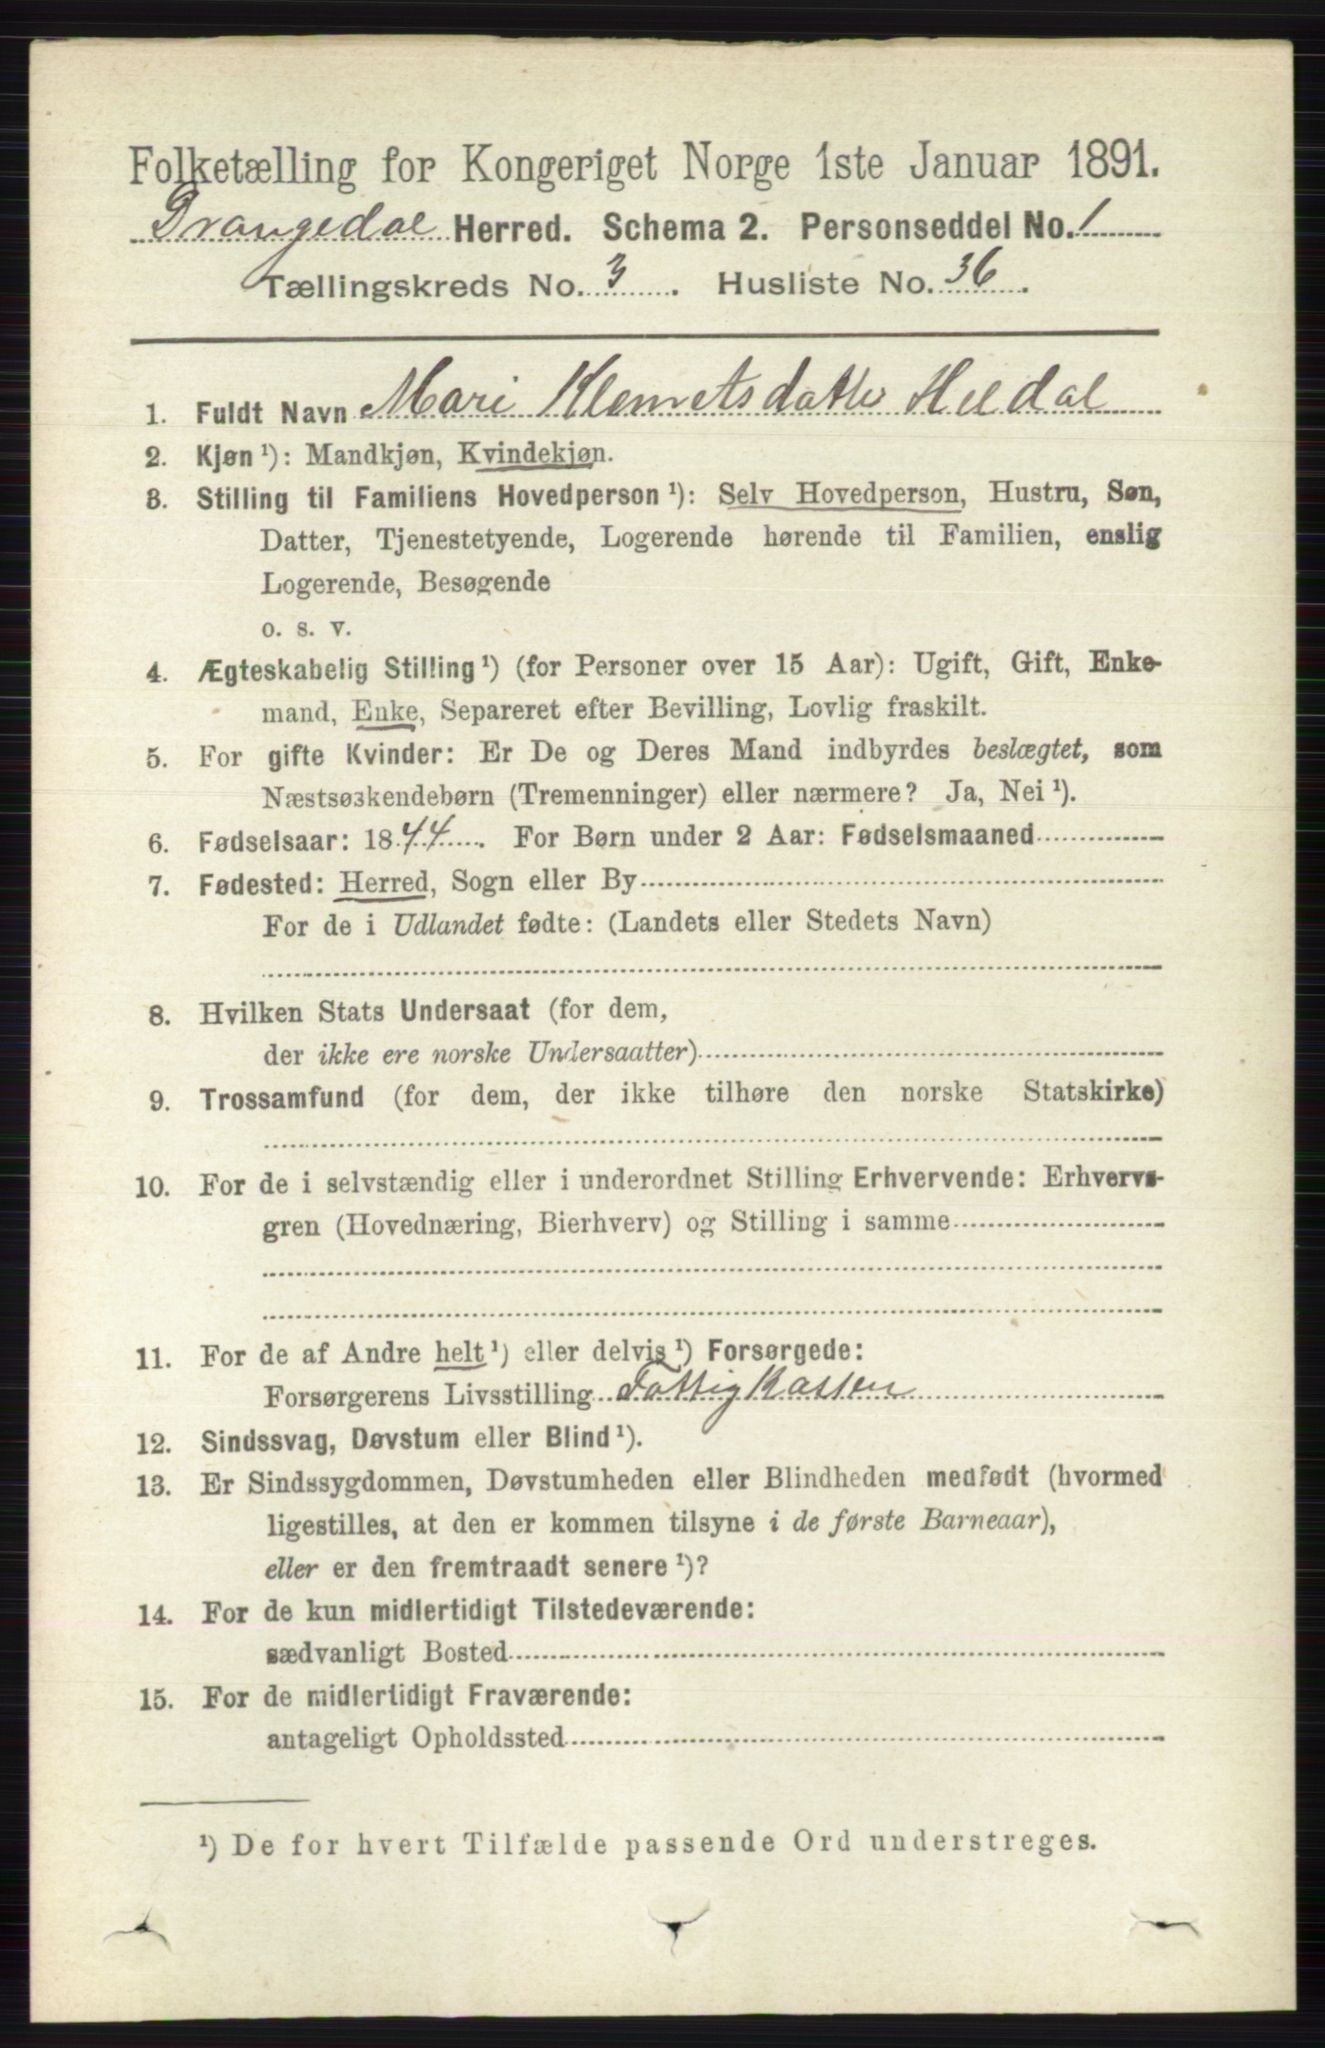 Folketælling for Kongeriget Norge 1ste Januar 1891.
Drangedal Herred. Schema 2. Personseddel No. 1
Tællingskreds No. 3. Husliste No. 36.
1. Fuldt Navn Mari Klemetsdatter Heldal
2. Kjøn ¹): Mandkjøn, Kvindekjøn.
3. Stilling til Familiens Hovedperson ¹): Selv Hovedperson, Hustru, Søn,
Datter, Tjenestetyende, Logerende hørende til Familien, enslig
Logerende, Besøgende
o. s. v.
4. Ægteskabelig Stilling ¹) (for Personer over 15 Aar): Ugift, Gift, Enke-
mand, Enke, Separeret efter Bevilling, Lovlig fraskilt.
5. For gifte Kvinder: Er De og Deres Mand indbyrdes beslægtet, som
Næstsøskendebørn (Tremenninger) eller nærmere? Ja, Nei ¹).
6. Fødselsaar: 1844. For Børn under 2 Aar: Fødselsmaaned
7. Fødested: Herred, Sogn eller By
For de i Udlandet fødte: (Landets eller Stedets Navn)
8. Hvilken Stats Undersaat (for dem,
der ikke ere norske Undersaatter)
9. Trossamfund (for dem, der ikke tilhøre den norske Statskirke)
10. For de i selvstændig eller i underordnet Stilling Erhvervende: Erhvervs-
gren (Hovednæring, Bierhverv) og Stilling i samme
11. For de af Andre helt ¹) eller delvis ¹) Forsørgede:
Forsørgerens Livsstilling Fattigkassen
12. Sindssvag, Døvstum eller Blind ¹).
13. Er Sindssygdommen, Døvstumheden eller Blindheden medfødt (hvormed
ligestilles, at den er kommen tilsyne i de første Barneaar),
eller er den fremtraadt senere ¹)?
14. For de kun midlertidigt Tilstedeværende:
sædvanligt Bosted
15. For de midlertidigt Fraværende:
antageligt Opholdssted
¹) De for hvert Tilfælde passende Ord understreges.